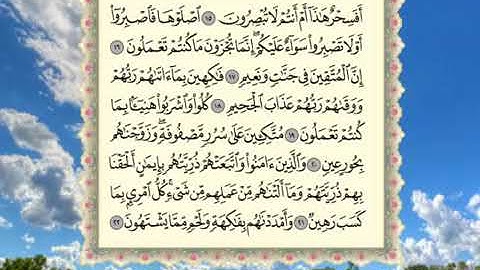 أَفَسِحْرٌ هَٰذَآ أَمْ أَنتُمْ لَا تُبْصِرُونَ ١٥ ٱصْلَوْهَا فَٱصْبِرُوٓا۟
أَوْ لَا تَصْبِرُوا۟ سَوَآءٌ عَلَيْكُمْ ۖ إِنَّمَا تُجْزَوْنَ مَا كُنتُمْ تَعْمَلُونَ ١٦
إِنَّ ٱلْمُتَّقِينَ فِى جَنَّٰتٍ وَنَعِيمٍ ١٧ فَٰكِهِينَ بِمَآ ءَاتَىٰهُمْ رَبُّهُمْ
وَوَقَىٰهُمْ رَبُّهُمْ عَذَابَ ٱلْجَحِيمِ ١٨ كُلُوا۟ وَٱشْرَبُوا۟ هَنِيٓـًٔۢا بِمَا
كُنتُمْ تَعْمَلُونَ ١٩ مُتَّكِـِٔينَ عَلَىٰ سُرُرٍ مَّصْفُوفَةٍ ۖ وَزَوَّجْنَٰهُم
بِحُورٍ عِينٍ ٢٠ وَٱلَّذِينَ ءَامَنُوا۟ وَٱتَّبَعَتْهُمْ ذُرِّيَّتُهُم بِإِيمَٰنٍ أَلْحَقْنَا
بِهِمْ ذُرِّيَّتَهُمْ وَمَآ أَلَتْنَٰهُم مِّنْ عَمَلِهِم مِّن شَىْءٍ ۚ كُلُّ ٱمْرِئٍۭ بِمَا
كَسَبَ رَهِينٌ ٢١ وَأَمْدَدْنَٰهُم بِفَٰكِهَةٍ وَلَحْمٍ مِّمَّا يَشْتَهُونَ ٢٢